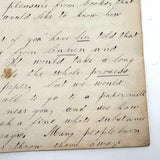 pleasure from books, that
would like to know how
if you have lin told that
from linnen and
It would take a long
the whole process
paper, but we would
all to go to a paper mill
near you and see how
a fine white substance
rags. Many people burn
throw them away